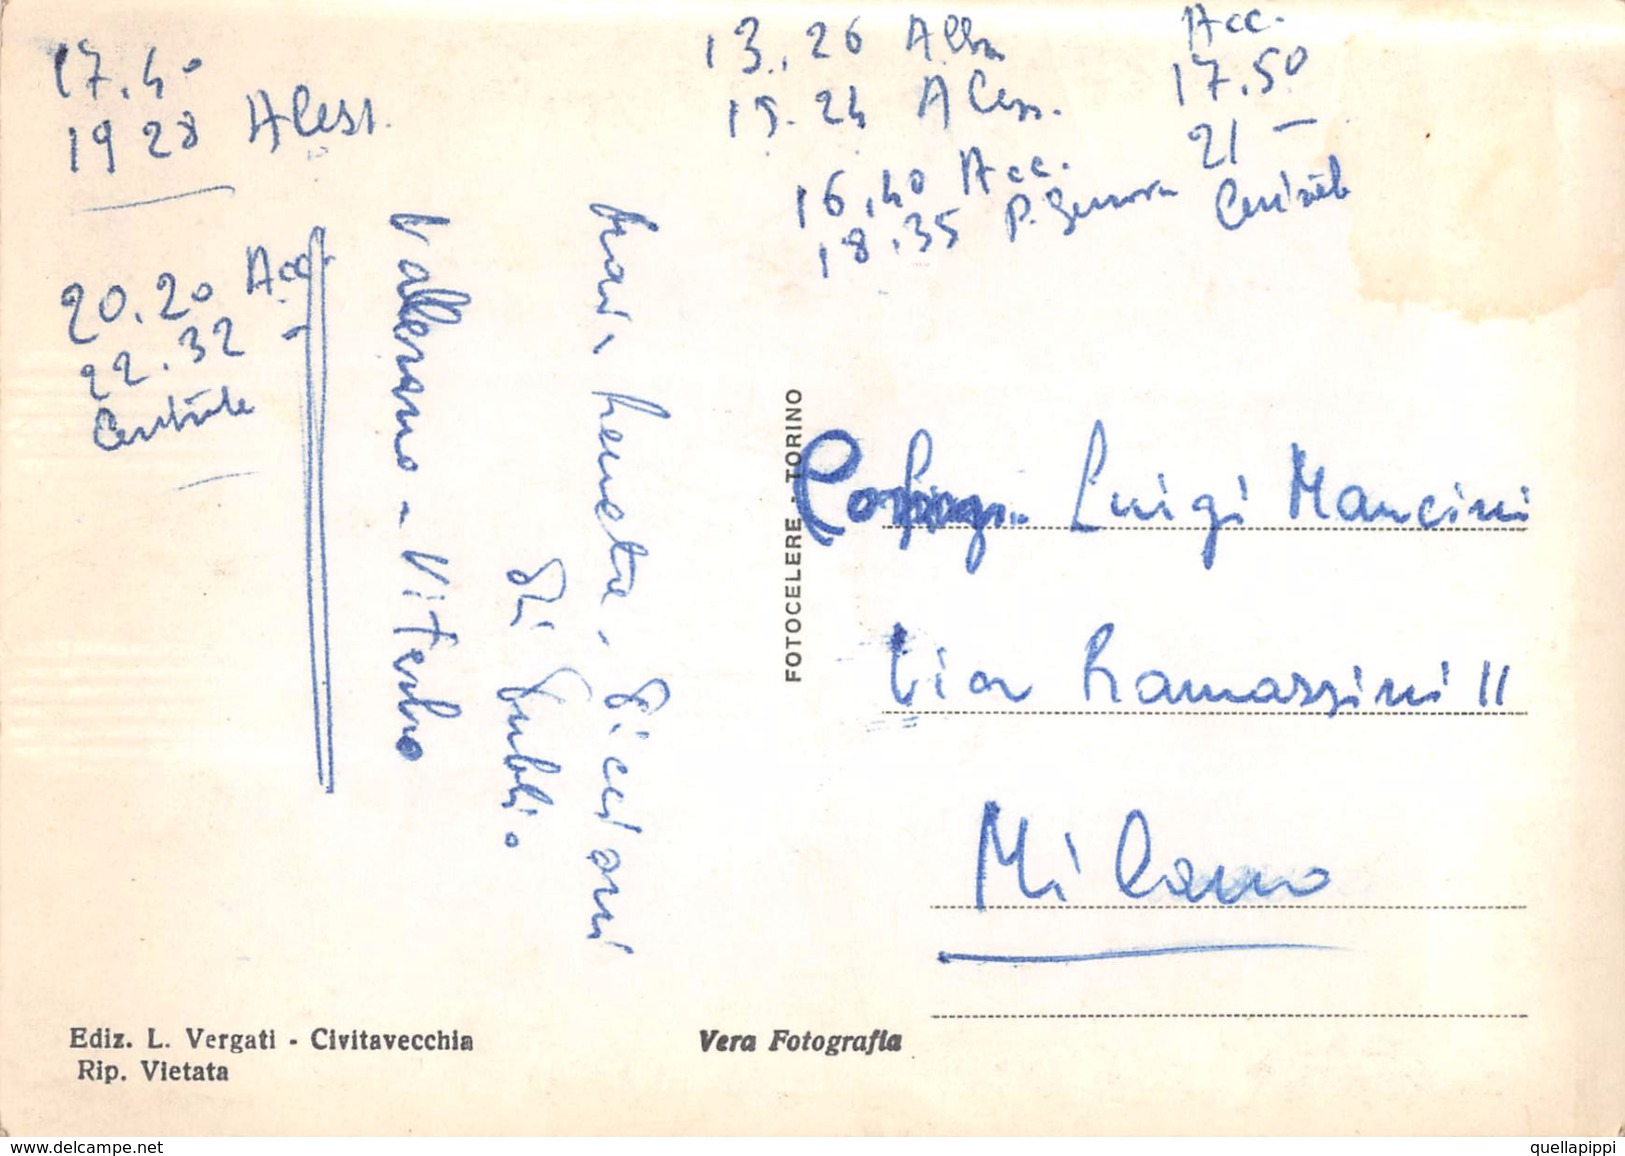 17.40
19 28 Aless.
20.20 Acc.
22.32 -
Centrale
13.26 Alba
15.24 Aless.
16.40 Acc.
18.35 P. Genova
Acc.
17.50
21 -
Centrale
Vallerano - Viterbo
di Gubbio
FOTOCELERE - TORINO
Luigi Mancini
Via Ramazzini 11
Milano
Ediz. L. Vergati - Civitavecchia
Rip. Vietata
Vera Fotografia
delcampe.net
quellapippi